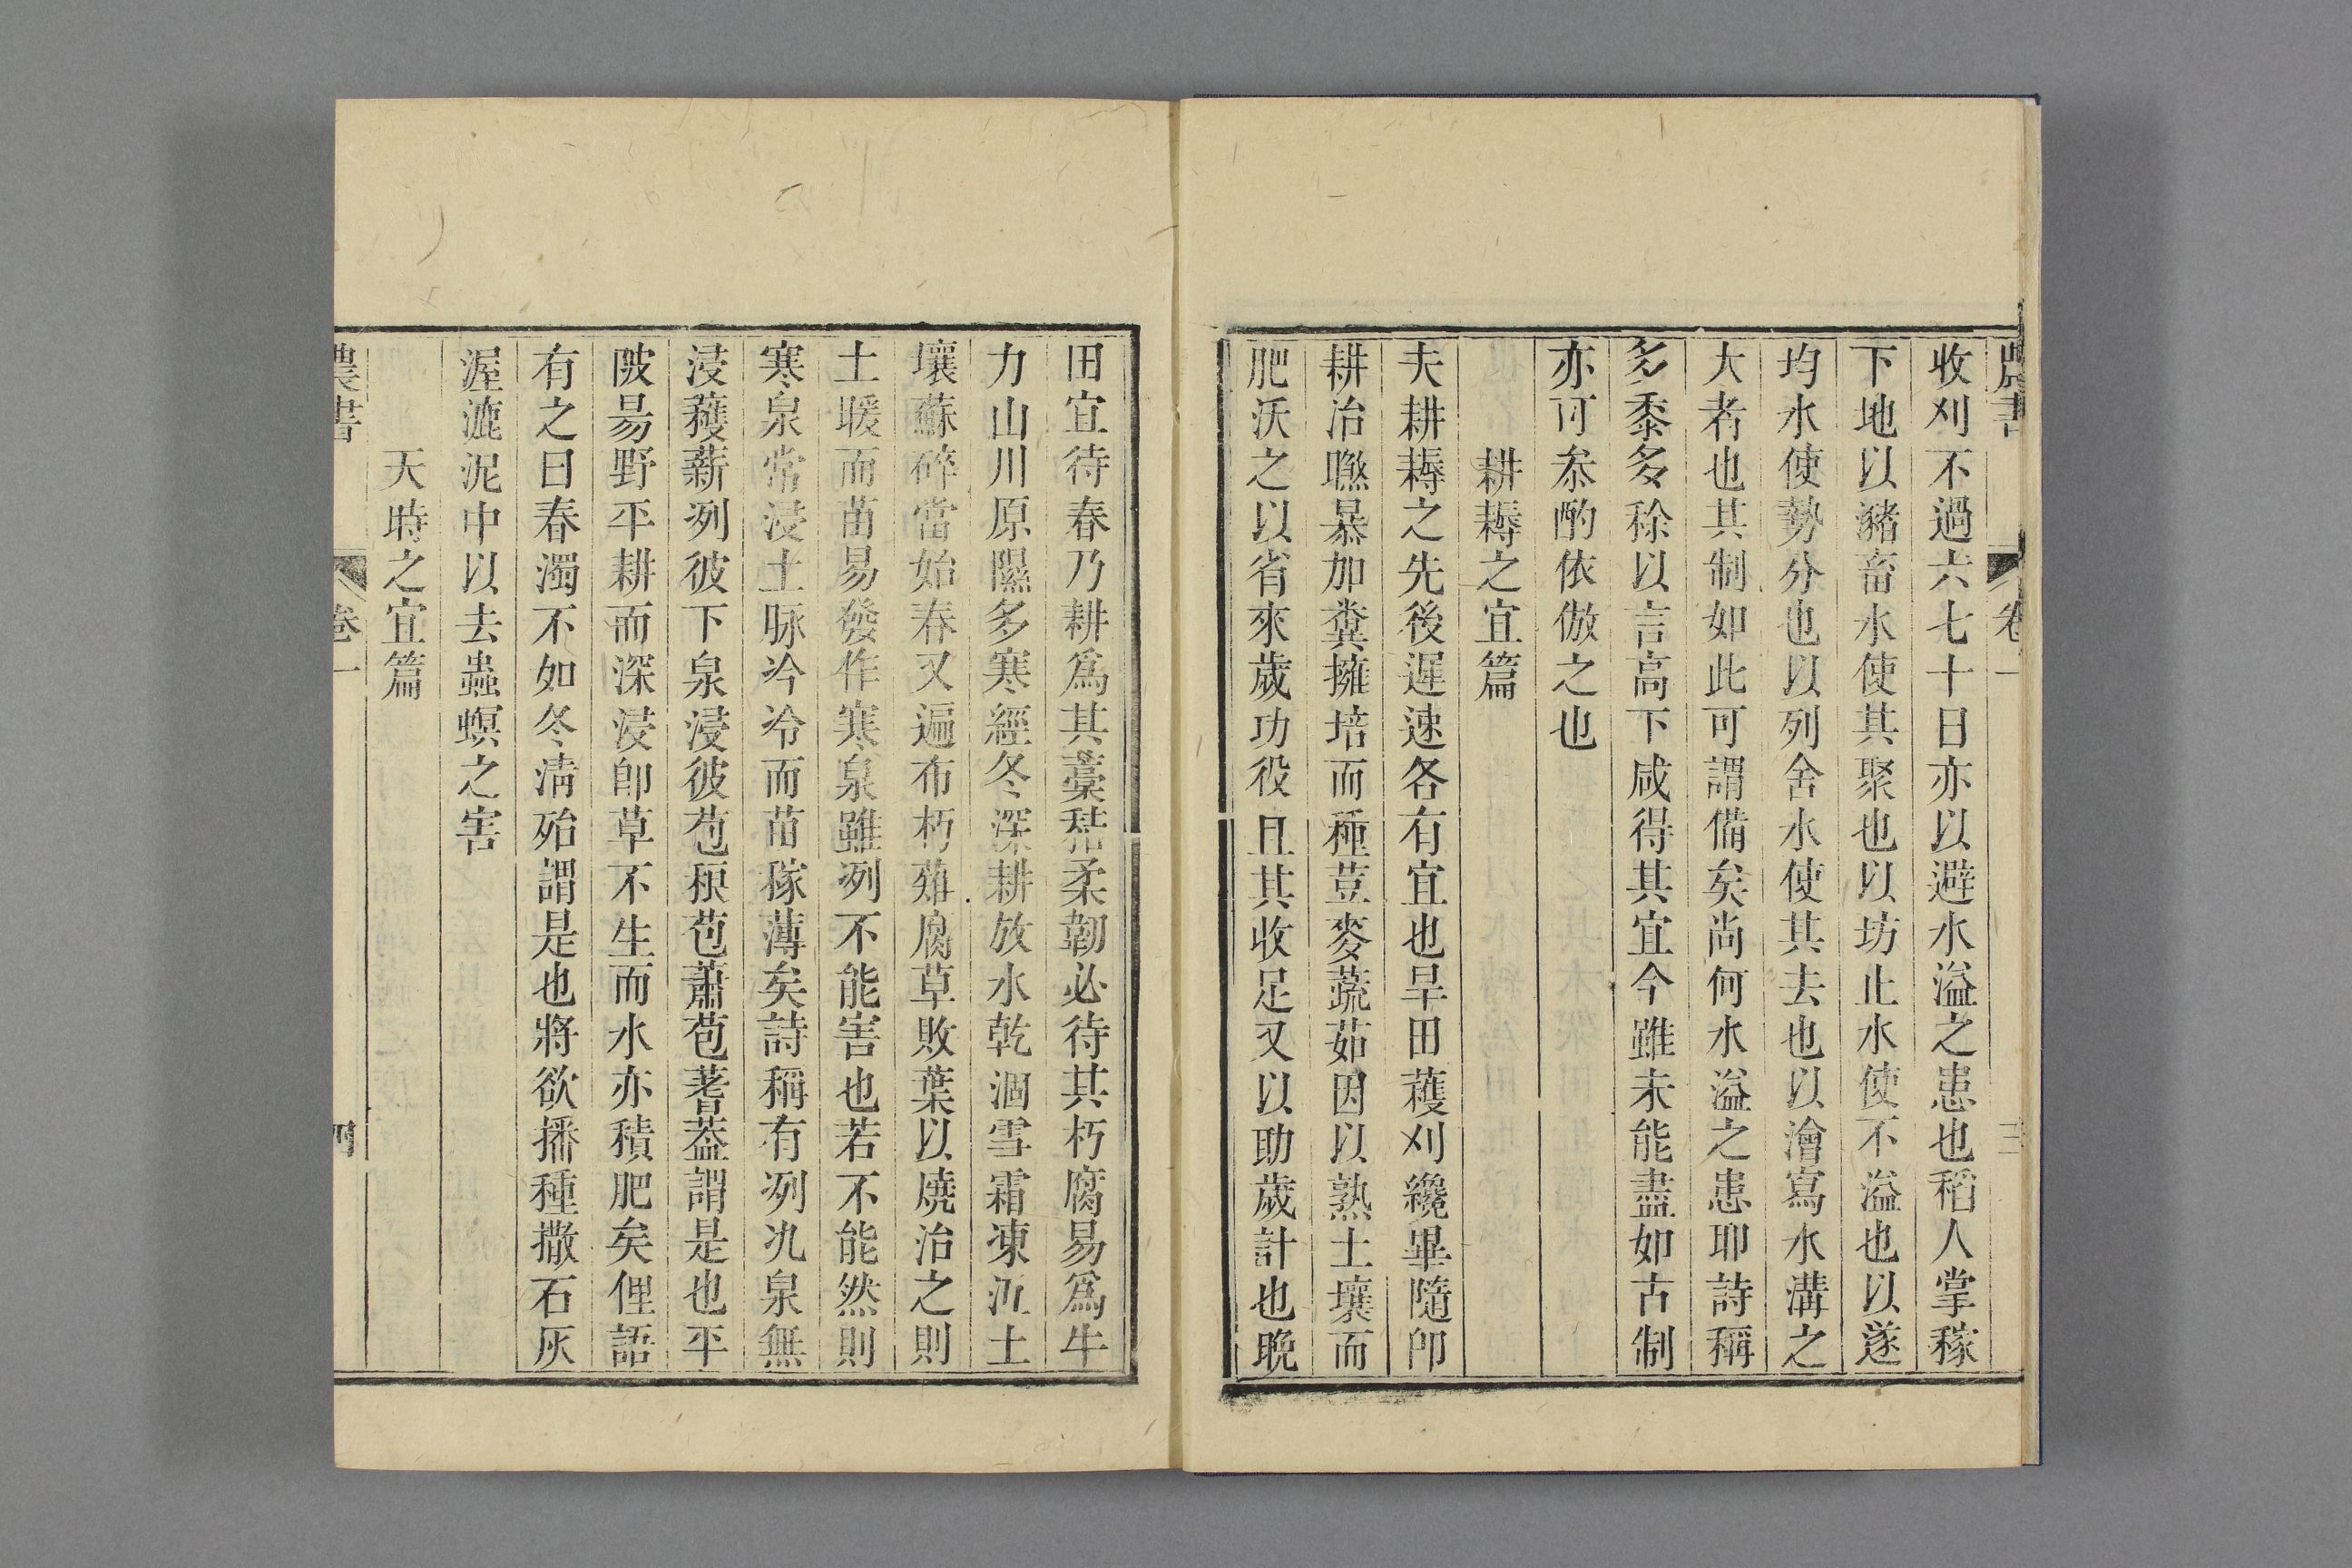 農書 卷一 三
收刈不過六七十日亦以避水溢之患也稻人掌稼
下地以瀦畜水使其聚也以坊止水使不溢也以遂
均水使勢分也以列舍水使其去也以澮寫水溝之
大者也其制如此可謂備矣尚何水溢之患耶詩稱
多黍多稌以言高下咸得其宜今雖未能盡如古制
亦可叅酌依倣之也
耕耨之宜篇
夫耕耨之先後遲速各有宜也旱田穫刈纔畢隨卽
耕治㬠暴加糞擁培而種荳麥蔬茹因以熟土壤而
肥沃之以省來歲功役且其收足又以助歲計也晚
田宜待春乃耕爲其藁秸柔韌必待其朽腐易爲牛
力山川原隰多寒經冬深耕放水乾涸雪霜凍沍土
壤蘇碎當始春又遍布朽薙腐草敗葉以燒治之則
土暖而苗易發作寒泉雖冽不能害也若不能然則
寒泉常浸土脉冷冷而苗稼薄矣詩稱有冽氿泉無
浸穫薪冽彼下泉浸彼苞稂苞蕭苞蓍蓋謂是也平
陂昜野平耕而深浸卽草不生而水亦積肥矣俚語
有之曰春濁不如冬淸殆謂是也將欲播種撒石灰
渥漉泥中以去蟲螟之害
天時之宜篇
農書 卷一 四